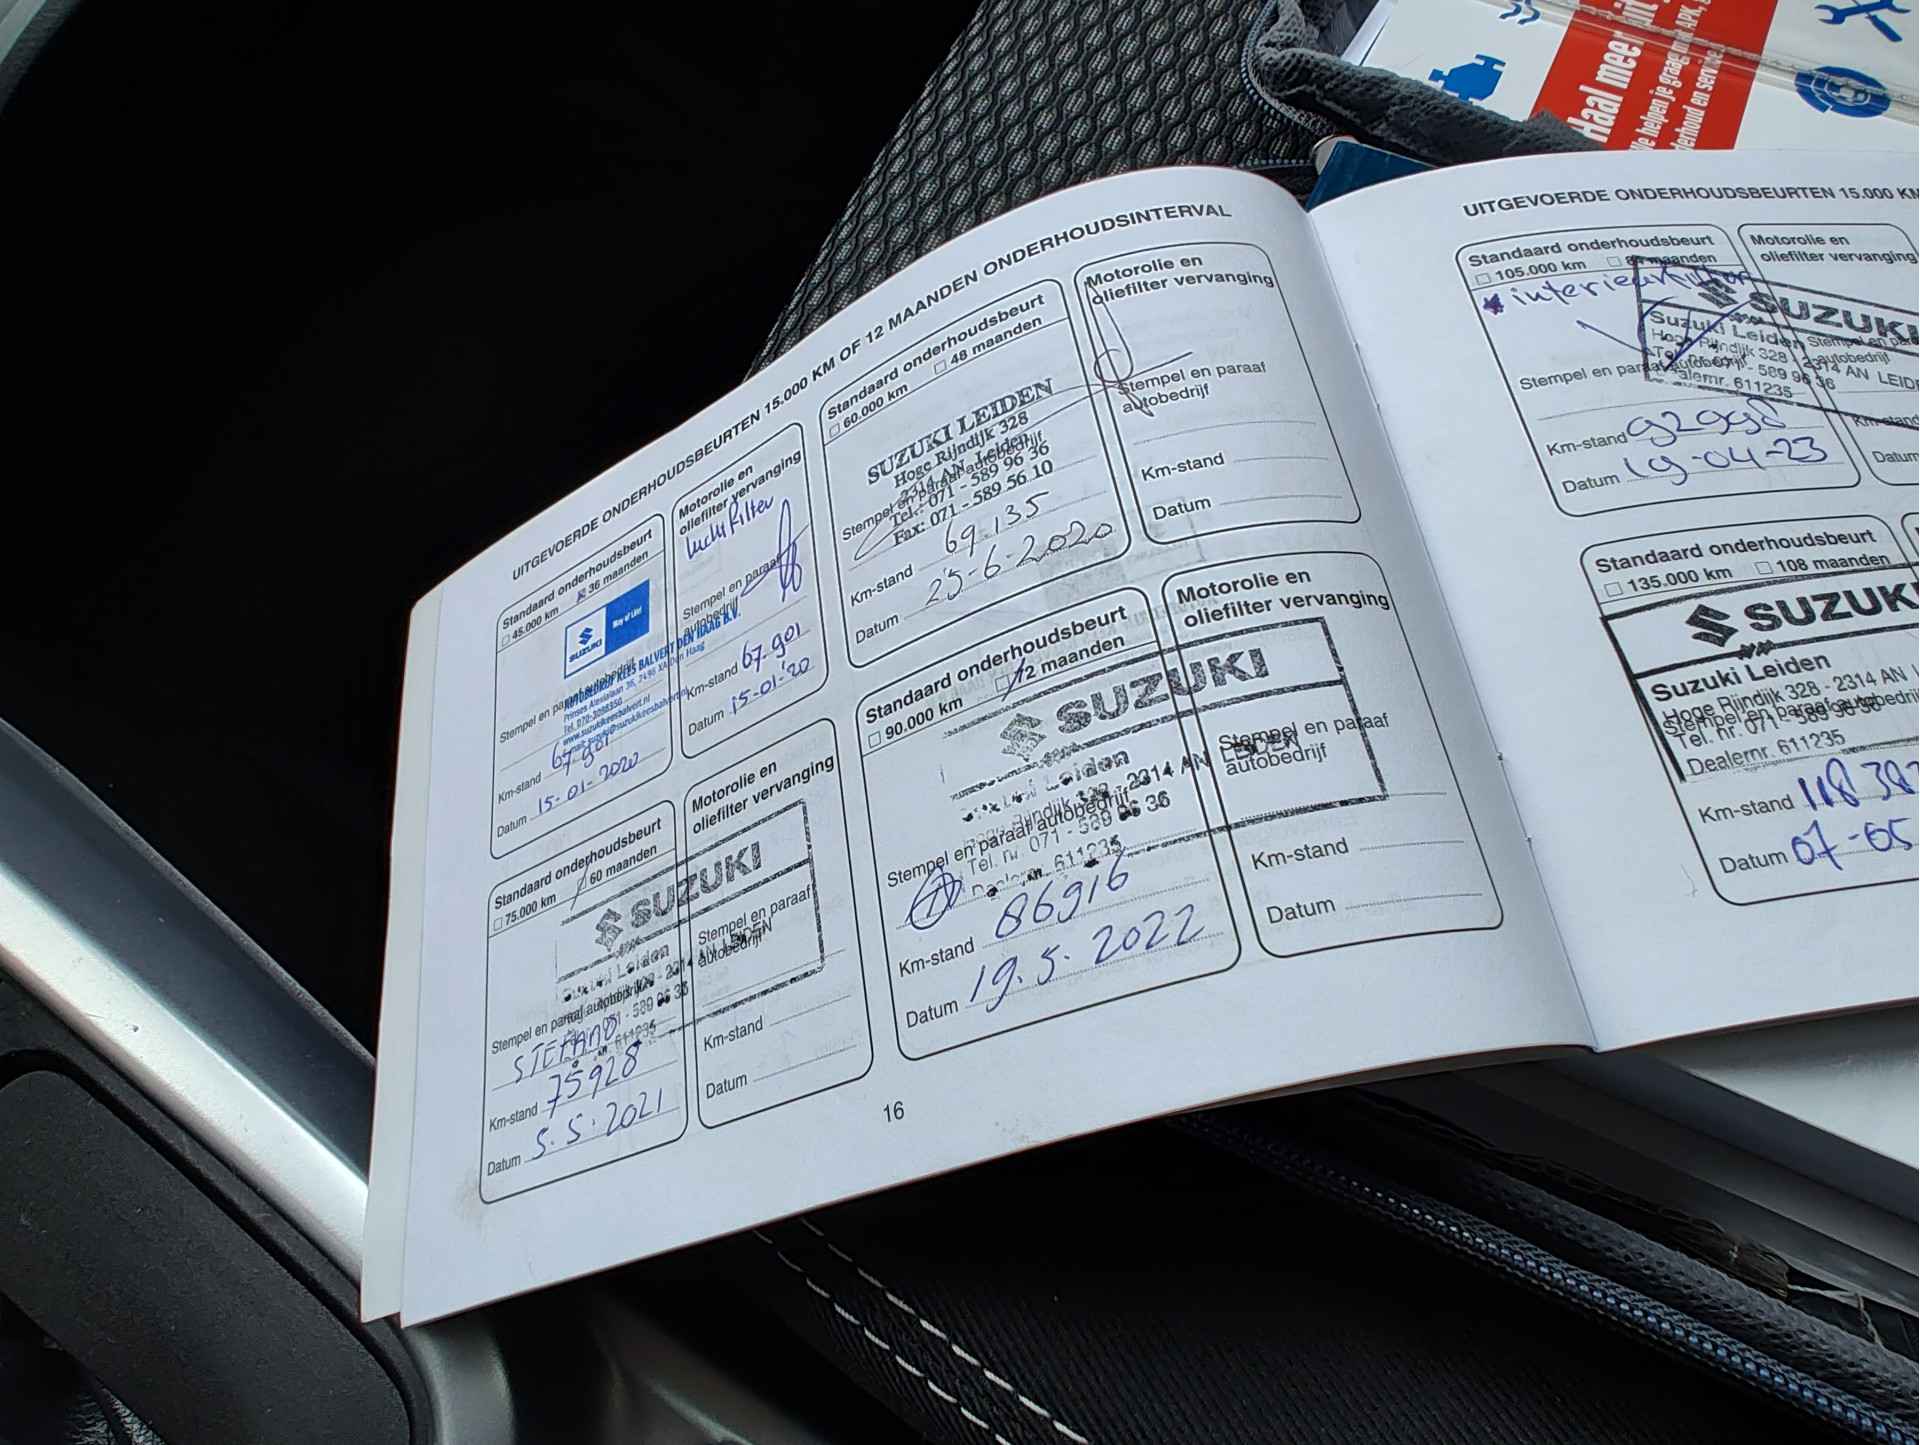 Haal meer uit
We helpen je graag met APK,
derhoud en service
UITGEVOERDE ONDERHOUDSBEURTEN 15.000 KM OF 12 MAANDEN ONDERHOUDSINTERVAL
Standaard onderhoudsbeurt
45.000 km 36 maanden
SUZUKI
Way of Life!
Stempel en paraaf autobedrijf
AUTOBEDRIJF KEES BALVERT DEN HAAG B.V.
Km-stand 67.901
Datum 15-01-2020
Motorolie en
oliefilter vervanging
luchtfilter
Stempel en paraaf
autobedrijf
Km-stand 67.901
Datum 15-01-'20
Standaard onderhoudsbeurt
60.000 km 48 maanden
SUZUKI LEIDEN
Hoge Rijndijk 328
2314 AN Leiden
Stempel en paraaf autobedrijf
Tel.: 071 - 589 96 36
Fax: 071 - 589 56 10
Km-stand 69.135
Datum 25-6-2020
Motorolie en
oliefilter vervanging
Stempel en paraaf
autobedrijf
Km-stand
Datum
Standaard onderhoudsbeurt
75.000 km 60 maanden
SUZUKI
Suzuki Leiden
2314 AN LEIDEN
Stempel en paraaf autobedrijf
071 - 589 96 36
611235
STEFANO
Km-stand 75928
Datum 5.5.2021
Motorolie en
oliefilter vervanging
Stempel en paraaf
autobedrijf
Km-stand
Datum
Standaard onderhoudsbeurt
90.000 km 72 maanden
SUZUKI
Suzuki Leiden
Hoge Rijndijk 328 - 2314 AN LEIDEN
Stempel en paraaf autobedrijf
Tel. nr. 071 - 589 96 36
Dealernr. 611235
Km-stand 86916
Datum 19.5.2022
Motorolie en
oliefilter vervanging
Stempel en paraaf
autobedrijf
Km-stand
Datum
16
UITGEVOERDE ONDERHOUDSBEURTEN 15.000 KM
Standaard onderhoudsbeurt
105.000 km 84 maanden
* interieurfilter
SUZUKI
Suzuki Leiden
Hoge Rijndijk 328 - 2314 AN LEID
Stempel en paraaf autobedrijf
Tel. nr. 071 - 589 96 36
Dealernr. 611235
Km-stand 92998
Datum 19-04-23
Motorolie en
oliefilter vervanging
Stempel en para
autobedrijf
Km-stand
Datum
Standaard onderhoudsbeurt
135.000 km 108 maanden
SUZUKI
Suzuki Leiden
Hoge Rijndijk 328 - 2314 AN
Stempel en paraaf autobedrijf
Tel. nr. 071 - 589 96 36
Dealernr. 611235
Km-stand 118 382
Datum 07-05